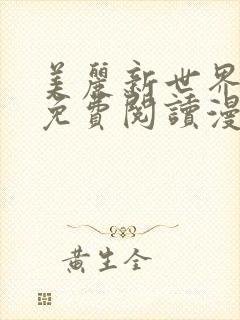 美麗新世界
免費閱讀漫
黃生全